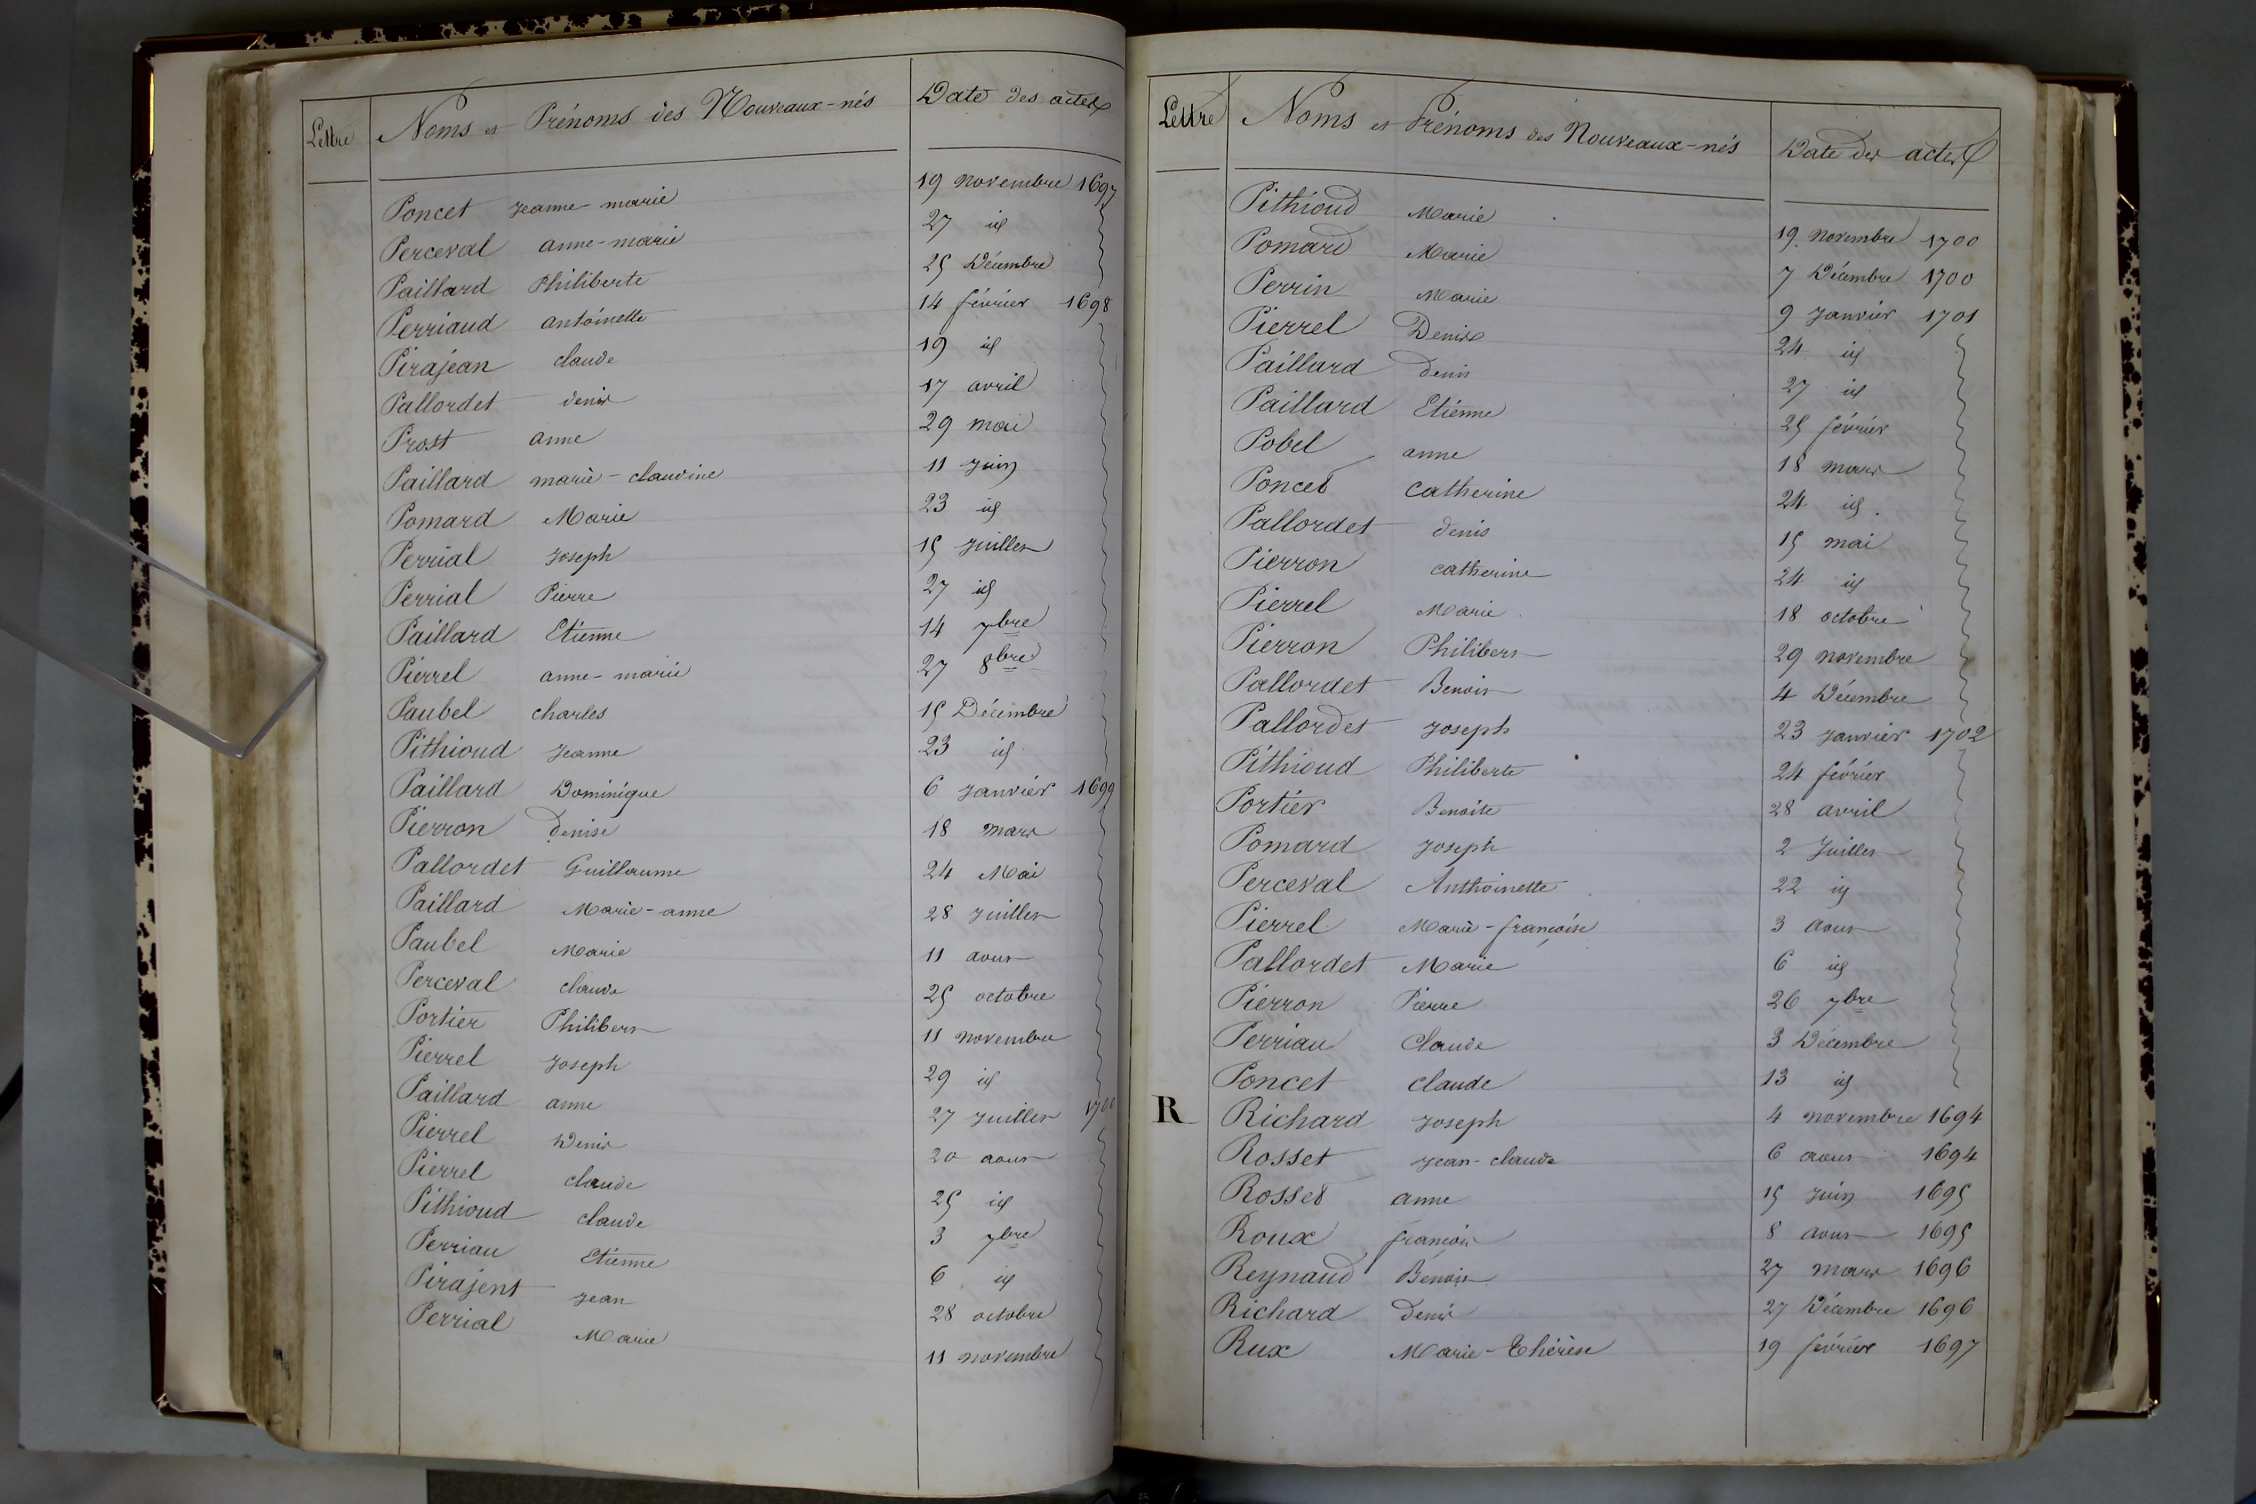 Lettre Noms et Prénoms des Nouveaux-nés Date des actes
Poncet Jeanne-marie 19 novembre 1697
Perceval anne-marie 27 id
Paillard Philiberte 25 Décembre
Perriaud antoinette 14 février 1698
Pirajean claude 19 id
Pallordet denis 17 avril
Prost anne 29 mai
Paillard marie-claudine 11 juin
Pomard Marie 23 id
Perrial Joseph 15 Juillet
Perrial Pierre 27 id
Paillard Etienne 14 7bre
Pierrel anne-marie 27 8bre
Paubel charles 15 Décembre
Pithioud Jeanne 23 id
Paillard Dominique 6 Janvier 1699
Pierron Denise 18 mars
Pallordet Guillaume 24 Mai
Paillard Marie-anne 28 Juillet
Paubel Marie 11 aout
Perceval claude 25 octobre
Portier Philibert 11 novembre
Pierrel Joseph 29 id
Paillard anne 27 Juillet 1700
Pierrel Denis 20 aout
Pierrel claude 25 id
Pithioud claude 3 7bre
Perriau Etienne 6 id
Pirajent Jean 28 octobre
Perrial Marie 11 novembre
Lettre Noms et Prénoms des Nouveaux-nés Date des actes
Pithioud Marie 19 novembre 1700
Pomard Marie 7 Décembre 1700
Perrin Marie 9 Janvier 1701
Pierrel Denis 24 id
Paillard denis 27 id
Paillard Etienne 25 février
Pobel anne 18 mars
Poncet catherine 24 id.
Pallordet denis 15 mai
Pierron catherine 24 id
Pierrel Marie 18 octobre
Pierron Philibert 29 novembre
Pallordet Benoit 4 Décembre
Pallordet Joseph 23 Janvier 1702
Pithioud Philiberte 24 février
Portier Benoite 28 avril
Pomard Joseph 2 Juillet
Perceval Anthoinette 22 id
Pierrel Marie-françoise 3 aout
Pallordet Marie 6 id
Pierron Pierre 26 7bre
Perriau Claude 3 Décembre
Poncet claude 13 id
R Richard Joseph 4 novembre 1694
Rosset Jean-claude 6 aout 1694
Rosset anne 15 juin 1695
Roux françois 8 aout 1695
Reynaud Benoit 27 mars 1696
Richard Denis 27 Décembre 1696
Rux Marie-Thérèse 19 février 1697